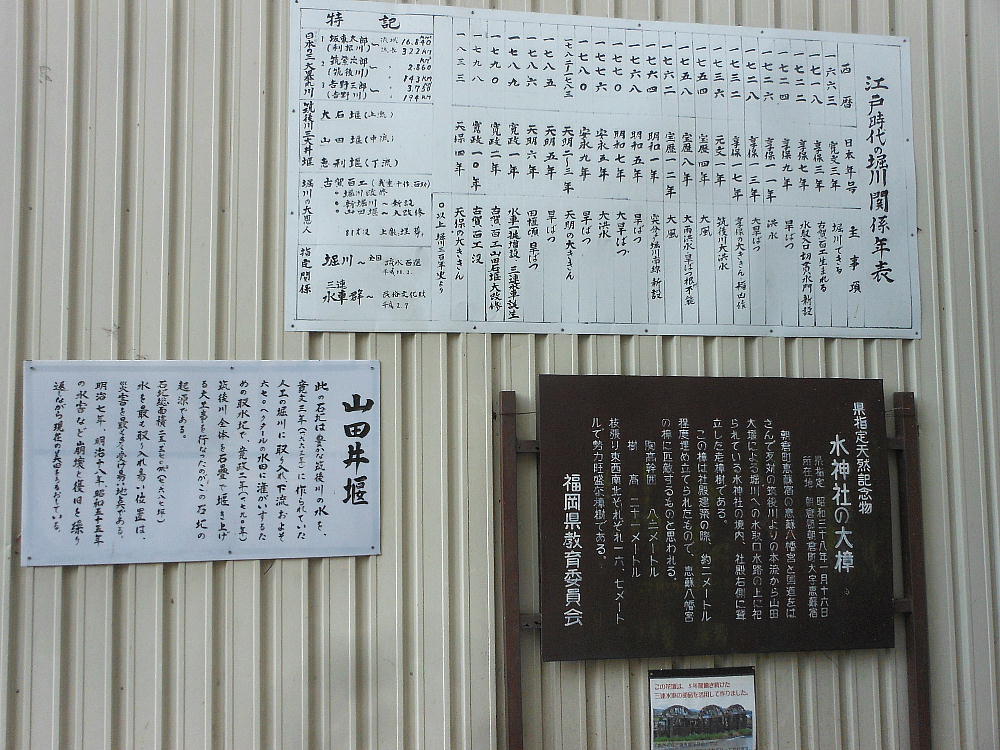 江戸時代の堀川関係年表
西暦 日本年号 主事項
一六六三 寛文三年 堀川できる
一七一八 享保三年 古賀百工生まれる
一七二二 享保七年 水取入口切貫水門新設
一七二四 享保九年 旱ばつ
一七二六 享保一一年 洪水
一七二八 享保一三年 大旱ばつ
一七三二 享保一七年 享保の大ききん
一七三六 元文一年 筑後川大洪水
一七五四 宝暦四年 大風
一七五八 宝暦八年
一七六二 宝暦一二年 大風
一七六四 明和一年 新設
一七六八 明和五年 旱ばつ
一七七〇 明和七年 大旱ばつ
一七七六 安永五年 大洪水
一七八〇 安永九年 旱ばつ
一七八二~一七八三 天明二~三年 天明の大ききん
一七八五 天明五年 旱ばつ
一七八六 天明六年 旱ばつ
一七八九 寛政一年 三連水車誕生
一七九〇 寛政二年 古賀百工山田石堰大改修
一七九八 寛政一〇年 古賀百工没
一八三三 天保四年 天保の大ききん
◎以上堀川三百年史より
特記
日本の三大暴れ川
1 坂東太郎(利根川) 流域 16.840km² 流長 322km
2 筑紫次郎(筑後川) 2.860km² 143km
3 吉野三郎(吉野川) 3.750km² 194km
筑後川三大井堰
大石堰(上流)
山田堰(中流)
恵利堰(下流)
堀川の大恩人
古賀百工
・堀川改修
・新堀川~新設
・山田堰~大改修
81才没
指定関係
堀川~全国疏水百選
三連水車群~
平成2.7.
山田井堰
此の石堰は豊かな筑後川の水を、
寛文三年(一六六三年)に作られていた
人工の堀川に取り入れ下流およそ
六七〇ヘクタールの水田に灌がいするた
めの取水堰で、寛政二年(一七九〇年)
筑後川全体を石畳で堰き上げ
る大工事を行なったのがこの石堰の
起源である。
水を最も取り入れ易い位置は、
災害を最も多く受け易い地点である。
明治七年、明治十八年昭和五十五年
の水害など崩壊と復旧を繰り
返しながら現在の美田をうるおしている。
県指定天然記念物
水神社の大樟
県指定 昭和三十八年一月十六日
所在地 朝倉郡朝倉町大字恵蘇宿
朝倉町恵蘇宿の恵蘇八幡宮と国道をは
さんで反対の筑後川よりの本流から山田
大堰による堀川への水取口水路の上に祀
られている水神社の境内、社殿右側に聳
立した老樟樹である。
この樟は社殿建築の際、約二メートル
程度埋め立てられたもので、恵蘇八幡宮
の樟に匹敵するものと思われる。
胸高幹囲 八二メートル
樹高 二十一メートル
枝張り東西南北それぞれ一六、七メート
ルで勢力旺盛な樟樹である。
福岡県教育委員会
この花壇は、5年間働き続けた
三連水車の部品を活用して作りました。